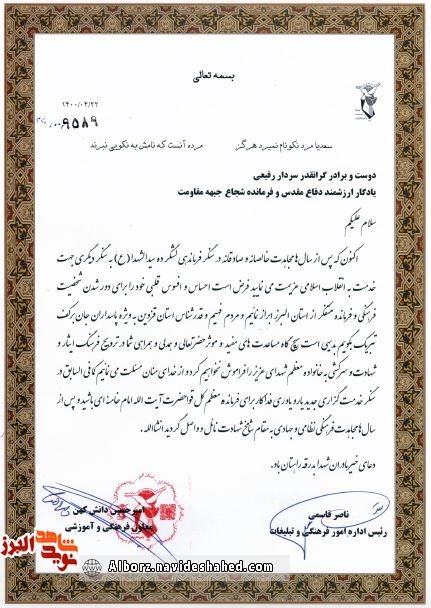 بسمه تعالی
۱۴۰۰/۰۴/۲۲
۹۵۸۹
سعدیا مرد نکونام نمیرد هرگز مرده آنست که نامش به نکویی نبرند
دوست و برادر گرانقدر سردار رفیعی
یادگار ارزشمند دفاع مقدس و فرمانده شجاع جبهه مقاومت
سلام علیکم
اکنون که پس از سال ها مجاهدت خالصانه و صادقانه در سنگر فرماندهی لشکر ده سیدالشهدا (ع) به سنگر دیگری جهت
خدمت به انقلاب اسلامی عزیمت می نمایید فرض است احساس و افسوس قلبی خود را برای دور شدن شخصیت
فرهنگی و فرمانده متفکر از استان البرز ابراز نمائیم و مردم فهیم و قدرشناس استان قزوین به ویژه پاسداران جان برکف
تبریک بگوییم بدیهی است هیچ گاه مساعدت های مفید و موثر حضرتعالی و همدلی و همراهی شما در ترویج فرهنگ ایثار و
شهادت و سرکشی به خانواده معظم شهدای عزیز را فراموش نخواهیم کرد و از خدای منان مسئلت می نمایم کمافی السابق در
سنگر خدمت گزاری جدید یار و یاوری فداکار برای فرمانده معظم کل قوا حضرت آیت الله امام خامنه ای باشید و پس از
سال ها مجاهدت فرهنگی نظامی و جهادی به مقام شامخ شهادت نائل و واصل گردید انشاالله.
دعای خیر مادران شهدا بدرقه راهتان باد.
ناصر قاسمی
رئیس اداره امور فرهنگی و تبلیغات
امیرحسین دانش کهن
معاون فرهنگی و آموزشی
نوید شاهد البرز
Alborz.navideshahed.com